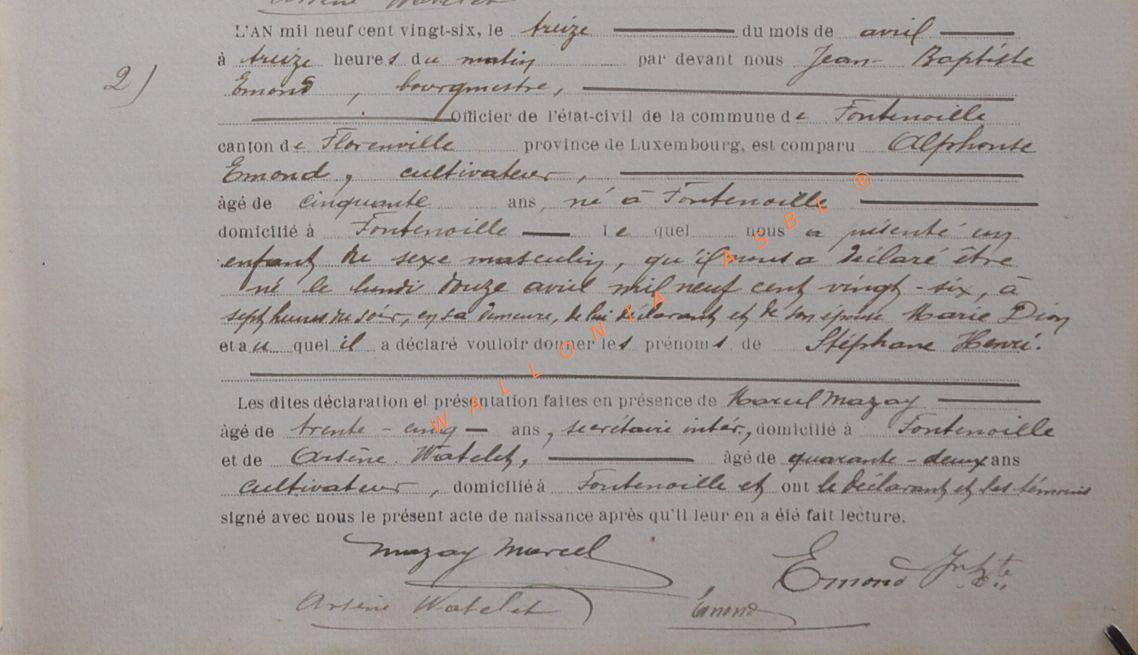 Arsène Watelet
L'AN mil neuf cent vingt-six, le treize du mois de avril
à treize heures du matin par devant nous Jean-Baptiste
2)
Emond, bourgmestre,
Officier de l'état-civil de la commune de Fontenoille
canton de Florenville province de Luxembourg, est comparu Alphonse
Emond, cultivateur,
âgé de cinquante ans, né à Fontenoille
domicilié à Fontenoille Le quel nous a présenté un
enfant du sexe masculin, qu'il nous a déclaré être
né le lundi douze avril mil neuf cent vingt-six, à
sept heures du soir, en sa demeure, de lui déclarant et de son épouse Marie Dion
et au quel il a déclaré vouloir donner les prénoms de Stéphane Henri.
Les dites déclaration et présentation faites en présence de Marcel Mazay
âgé de trente-cinq ans, secrétaire inter., domicilié à Fontenoille
et de Arsène Watelet, âgé de quarante-deux ans
cultivateur, domicilié à Fontenoille et ont le déclarant et les témoins
signé avec nous le présent acte de naissance après qu'il leur en a été fait lecture.
Mazay Marcel
Emond J. Bte
Arsène Watelet Emond
WALLONIA ASBL ®